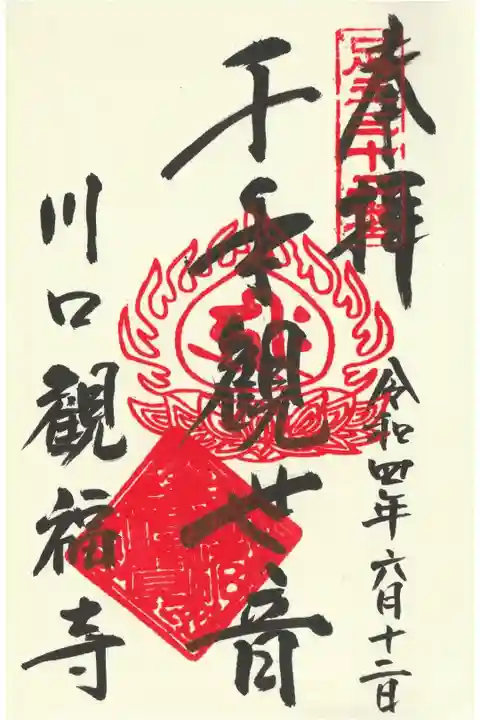 奉拝
令和四年六月十二日
千手觀世音
川口観福寺